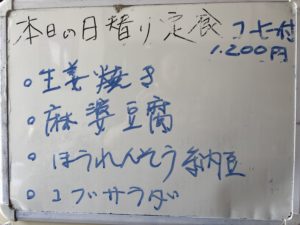 本日の日替り定食 コーヒー付
1.200円
○生姜焼き
○麻婆豆腐
○ほうれんそう納豆
○コブサラダ